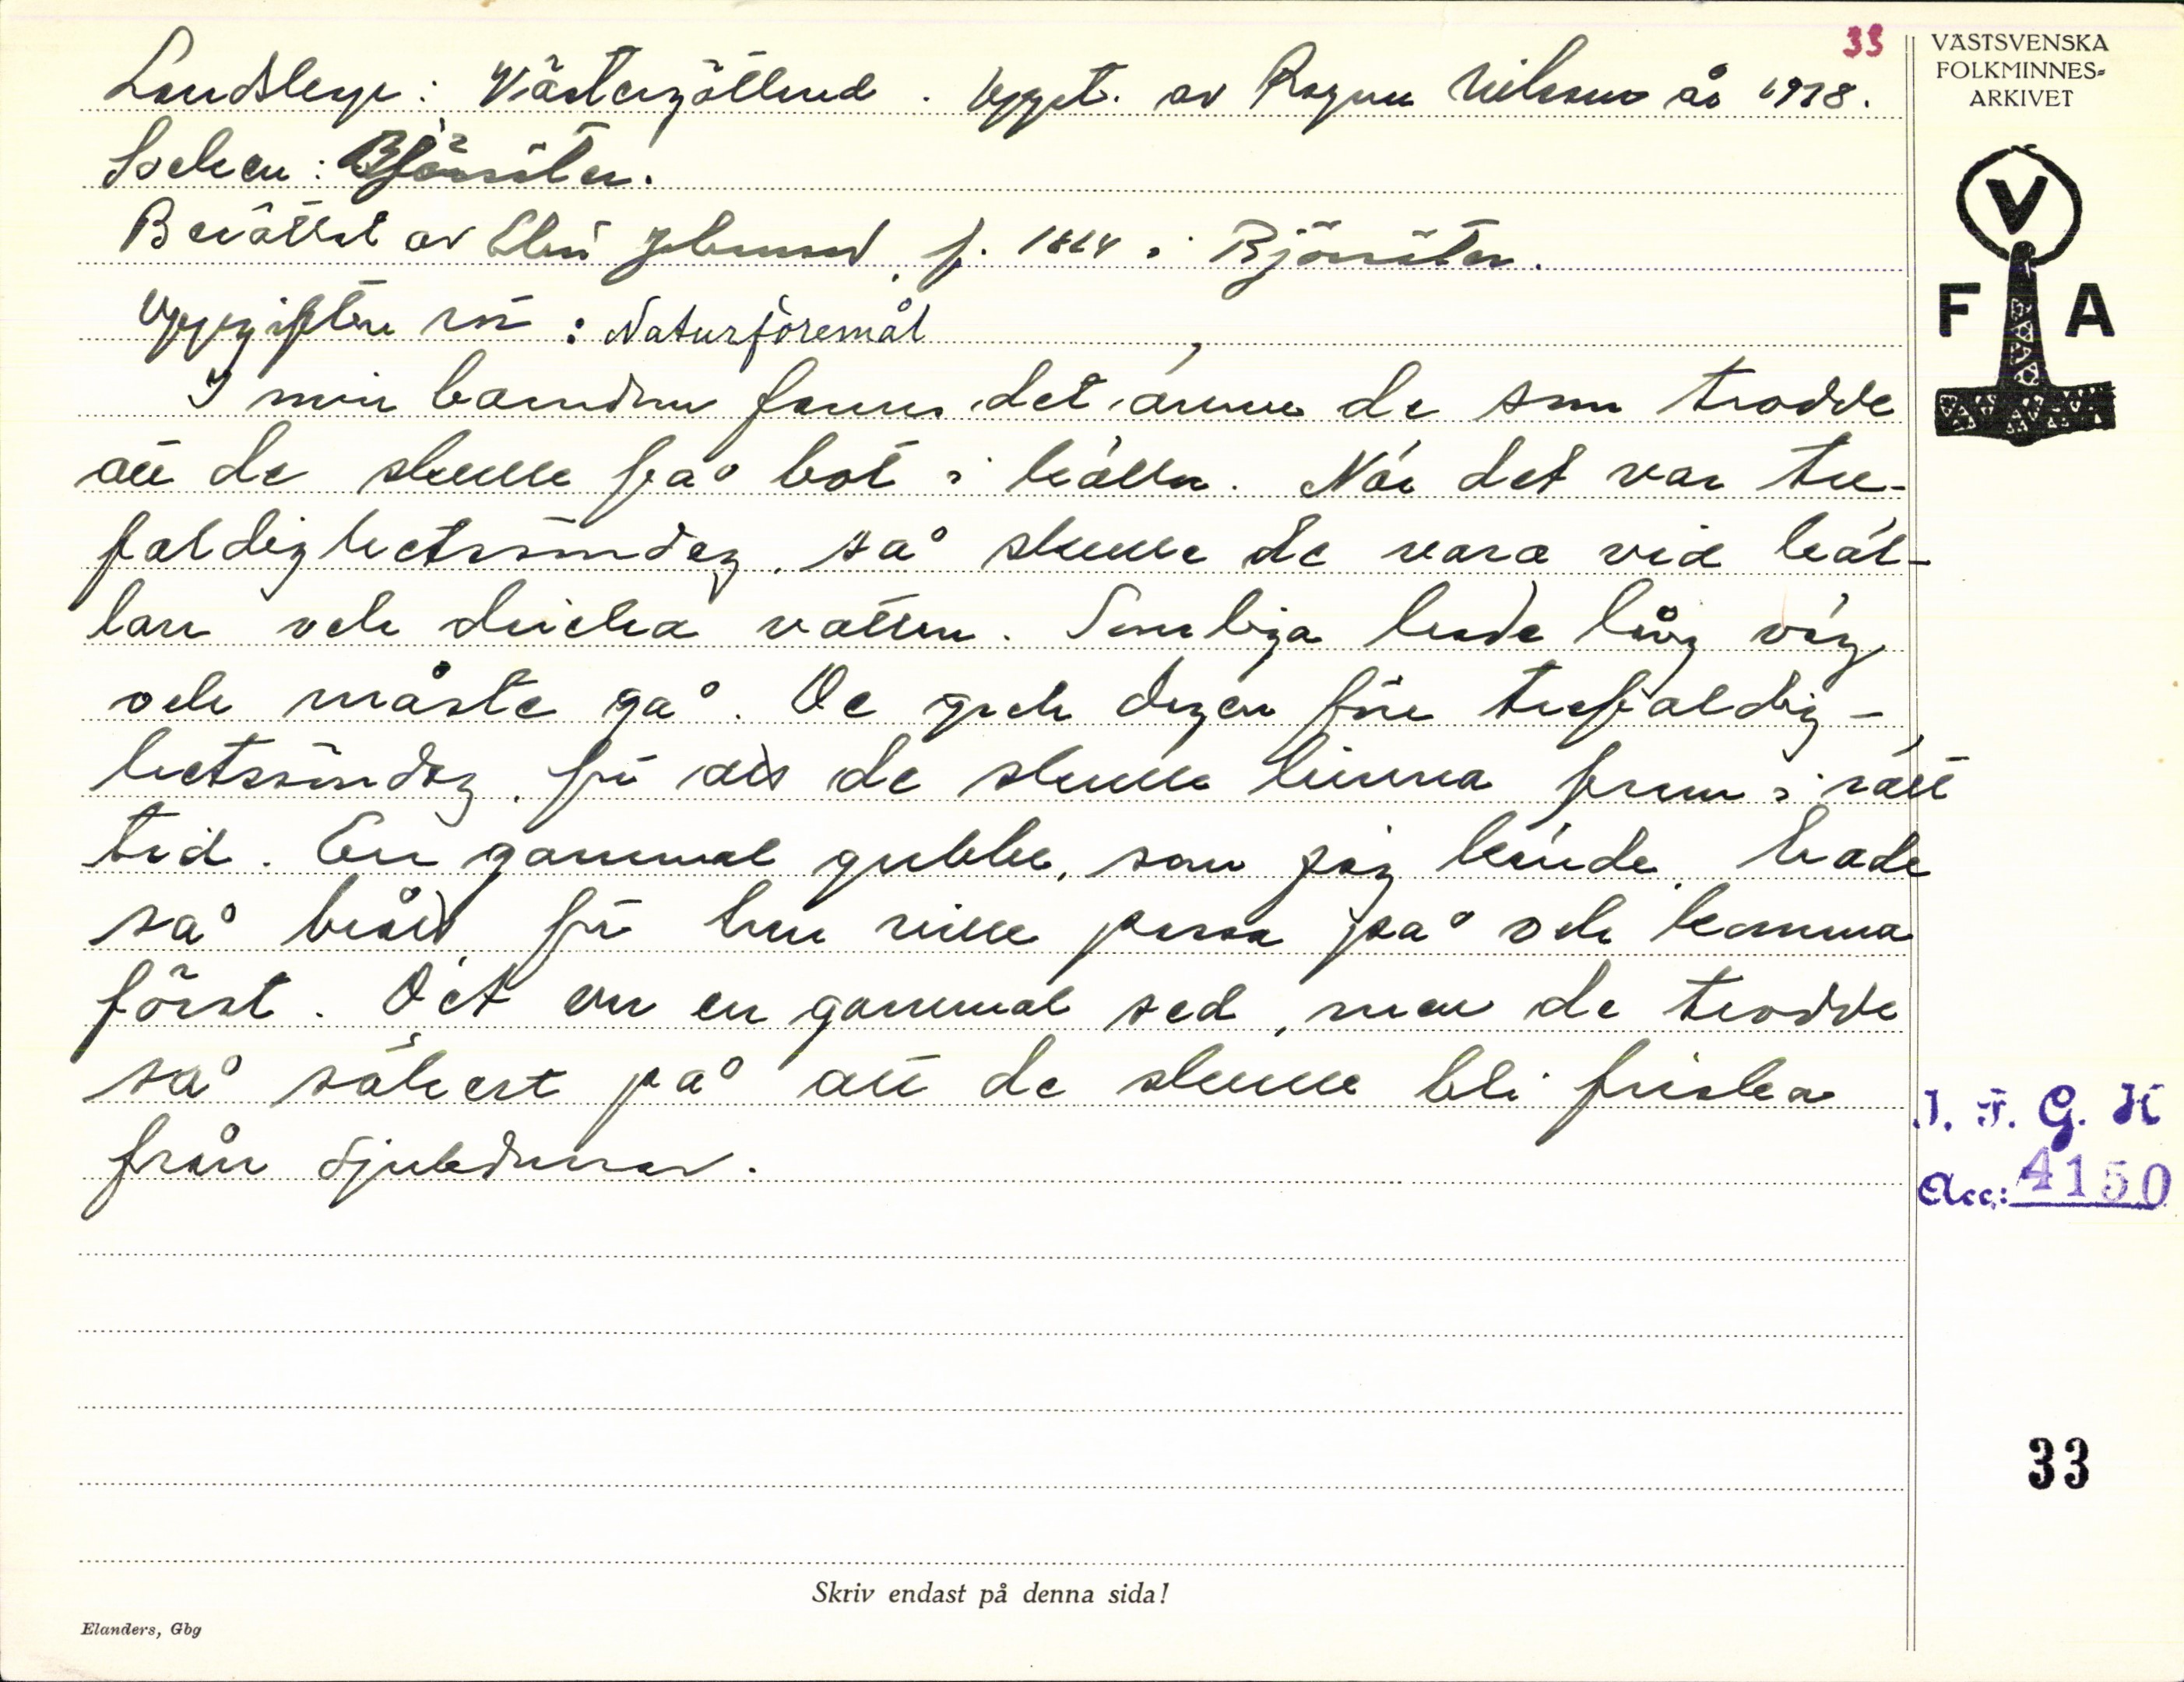 33
Landskap: Västergötland. Uppt. av Ragnar Nilsson år 1938.
Socken: Björsäter.
Berättat av Elin Johansson, f. 1864 i Björsäter.
Uppgifter rör: Naturföremål
I min barndom fanns det ännu de som trodde
att de skulle få bot i källor. När det var tre-
faldighetssöndag, så skulle de vara vid käl-
lan och dricka vatten. Somliga hade lång väg
och måste gå. De gick dagen före trefaldig-
hetssöndag, för att de skulle hinna fram i rätt
tid. En gammal gubbe, som jag kände, hade
så brått för han ville passa på och komma
först. Det var en gammal sed, men de trodde
så säkert på att de skulle bli friska
från sjukdomar.
VÄSTSVENSKA
FOLKMINNES-
ARKIVET
V
F A
I. F. G. H
Acc: 4150
33
Skriv endast på denna sida!
Elanders, Gbg